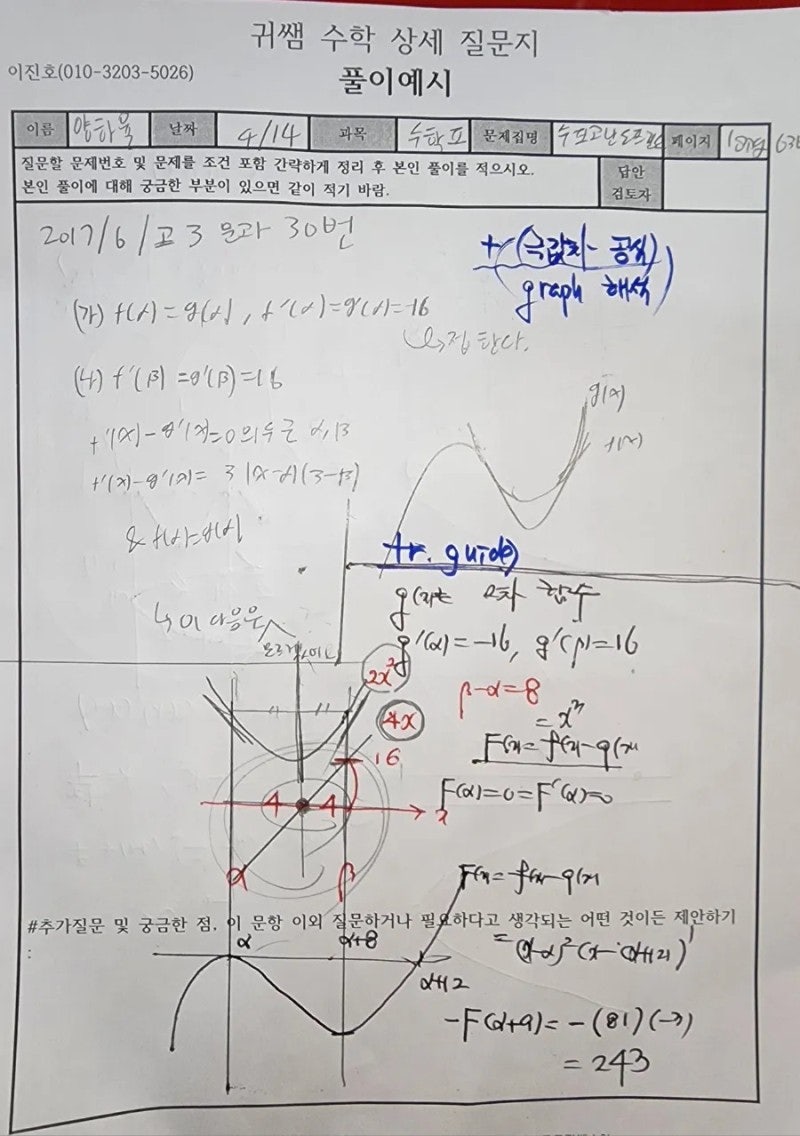 귀쌤 수학 상세 질문지
이진호(010-3203-5026)
풀이예시
이름 양하율 날짜 4/14 과목 수학Ⅱ 문제집명 페이지
질문할 문제번호 및 문제를 조건 포함 간략하게 정리 후 본인 풀이를 적으시오.
본인 풀이에 대해 궁금한 부분이 있으면 같이 적기 바람.
답안
검토자
2017/6/고3 문과 30번
tr(극값차- 공식)
graph 해석
(가) f(α)=g(α), f'(α)=g'(α)=-16
↳접한다.
(나) f'(β)=g'(β)=16
g(x)
f(x)
f'(x)-g'(x)=0의 두근 α,β
f'(x)-g'(x)= 3(x-α)(x-β)
& f(α)=g(α)
tr. guide)
g(x)는 2차 함수
↳ 이 다음은
g'(α)=-16, g'(β)=16
2x²
β-α=8
4x
= x³
16
F(x)=f(x)-g(x)
4 4
x
F(α)=0=F'(α)=0
α β
F(x)=f(x)-g(x)
#추가질문 및 궁금한 점, 이 문항 이외 질문하거나 필요하다고 생각되는 어떤 것이든 제안하기
:
α α+8
=(x-α)²(x-(α+12))
α+12
-F(α+9)=-(81)(-3)
=243